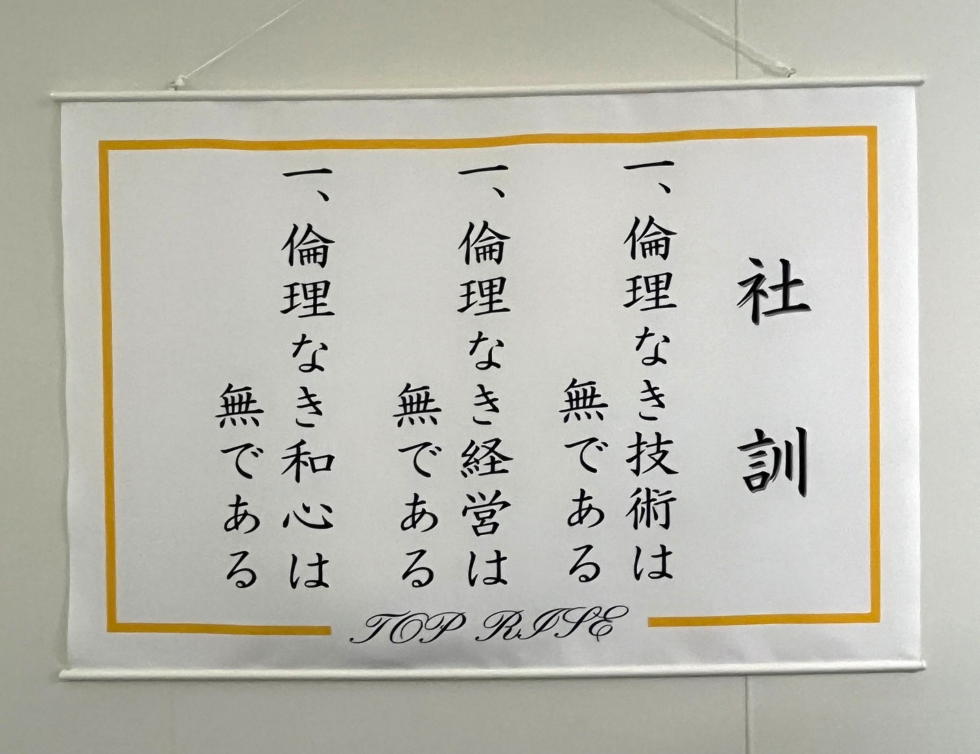 社訓
一、倫理なき技術は
無である
一、倫理なき経営は
無である
一、倫理なき和心は
無である
TOP RISE